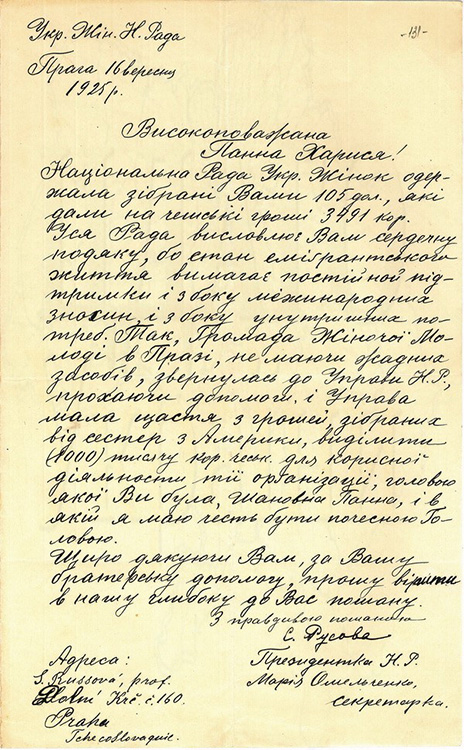 Укр. Жін. Н. Рада
-131-
Прага 16 вересня
1925 р.
Високоповажана
Панна Харися!
Національна Рада Укр. Жінок одер-
жала зібрані Вами 105 дол., які
дали на чешські гроші 3491 кор.
Уся Рада висловлює Вам сердечну
подяку, бо стан емігрантського
життя вимагає постійной під-
тримки і з боку міжнародних
зносин, і з боку унутришних по-
треб. Так, Громада Жіночої Мо-
лоді в Празі, не маючи жадних
засобів, звернулась до Управи Н.Р.,
прохаючи допомоги. і Управа
мала щастя з грошей, зібраних
від сестер з Америки, виділити
(1000) тисячу кор. чеськ. для корисної
діяльности тії організації, головою
якої Ви була, Шановна Панна, і в
якій я маю честь бути почесною Го-
ловою.
Щиро дякуючи Вам, за Вашу
братерську допомогу, прошу вірити
в нашу глибоку до Вас пошану.
З правдивою пошаною
С. Русова
Адреса:
Президентка Н.Р.
S. Russová, prof.
Марія Омельченко,
Dolní Krč č. 160.
секретарка.
Praha
Tchecoslovaquie.